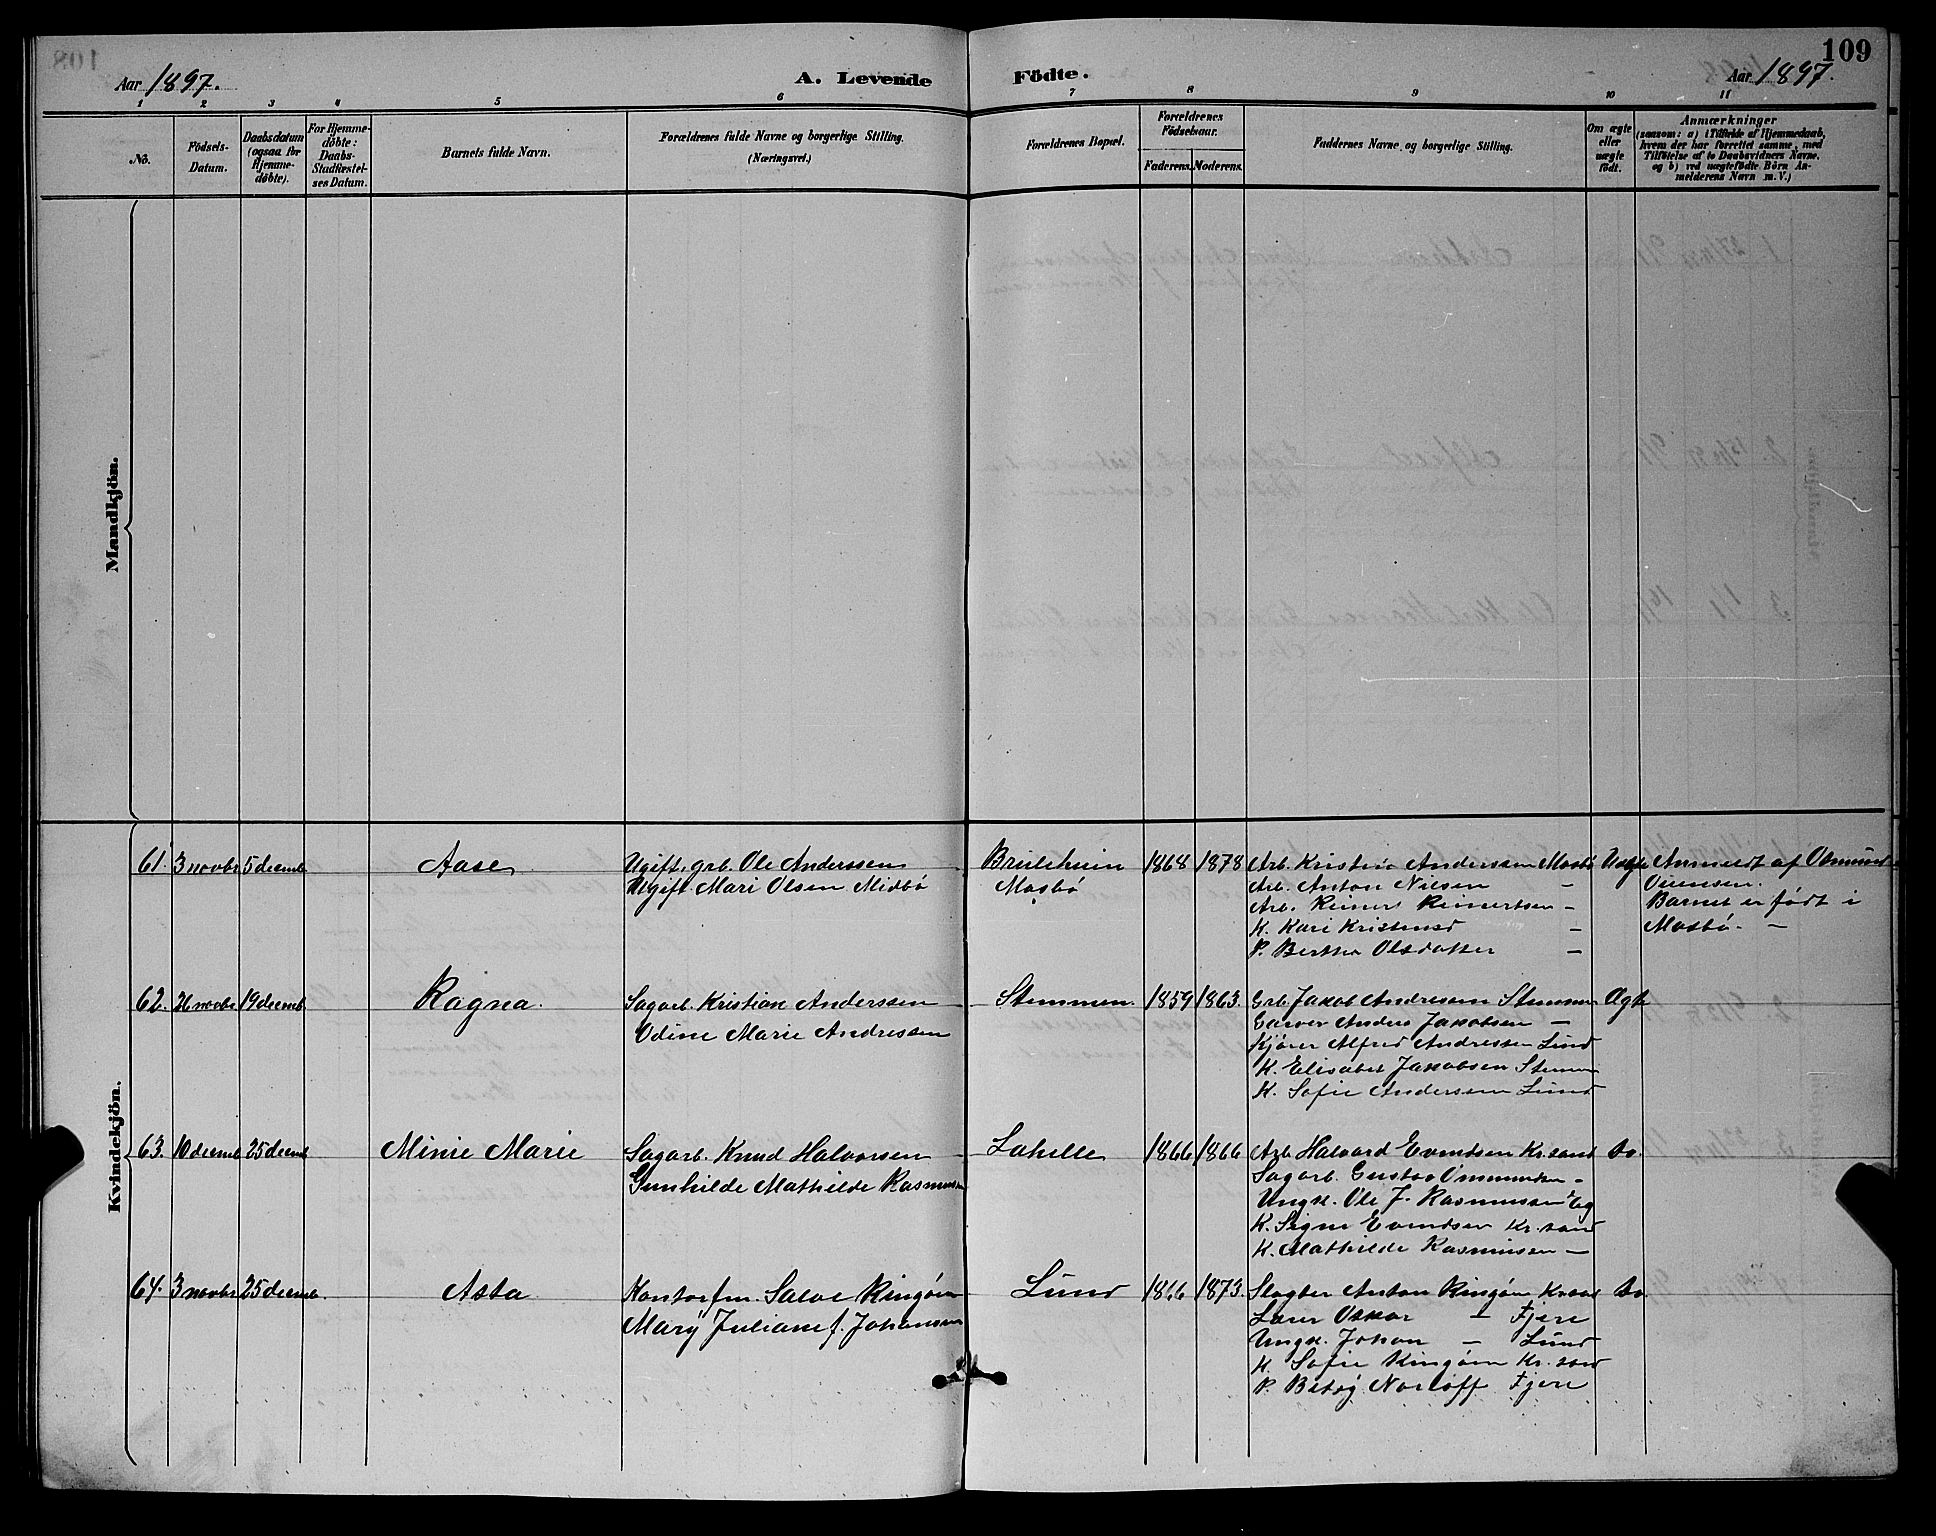 109
Aar 1897.
A. Levende Födte.
Aar 1897.
1 2 3 4 5 6 7 8 9 10 11
No.
Födsels-Datum.
Daabsdatum (ogsaa for Hjemme-döbte).
For Hjemme-döbte: Daabs-Stadfæstel-ses Datum.
Barnets fulde Navn.
Forældrenes fulde Navne og borgerlige Stilling.
(Næringsvei.)
Forældrenes Bopæl.
Forældrenes Födselsaar.
Faderens. Moderens.
Faddernes Navne og borgerlige Stilling.
Om ægte eller uægte födt.
Anmærkninger
(saasom: a) i Tilfælde af Hjemmedaab,
hvem der har forrettet samme, med
Tilföielse af to Daabsvidners Navne,
og b) ved uægtefödte Börn An-
melderens Navn m. V.)
Mandkjön.
Kvindekjön.
61. 3 novbr 5 decemb Aase
Ugift. grb. Ole Anderssen
Ugift Mari Olsen Midbö
Mosbö
1868 1878
Arb. Kristen Anderssen Mosbö
Arb. Anton Nilsen —
Arb. Reinert Reinertsen —
K. Kari Kristensd —
P. Berthe Olsdatter —
Uægte
Anmeldt af Osmund
Barnet er født i
Mosbö. —
62. 26 novbr 19 decemb Ragna.
Sagarb. Kristian Anderssen
Odine Marie Andressen
Stemmen.
1859 1863.
Grb. Jakob Andresen Stemmen
Garver Anders Jakobsen —
Kjører Alfred Andressen Lund
K. Elisabet Jakobsen Stemmen
K. Sofie Anderssen Lund
Ægte
63. 10 decemb 25 decemb Minie Marie
Sagarb. Knud Halvorsen
Gunhilde Mathilde Rasmussen
Lahelle
1866 1866
Arb. Halvard Evensen Kr.sand
Sagarb. Gustav Ommundsen —
Ungk. Ole J. Rasmussen Eg
K. Signe Evensen Kr.sand
K. Mathilde Rasmussen —
do.
64. 3 novbr 25 decemb. Asta
Kontorfm. Salve Ringöen
Mary Juliane f. Johansen
Lund
1866 1873.
Slagter Anton Ringöen Kr.sand
Lærer Oskar — Fjere
Ungk. Johan — Lund
K. Sofie Ringöen Kr.sand
P. Betsy Norloff Fjere
do.